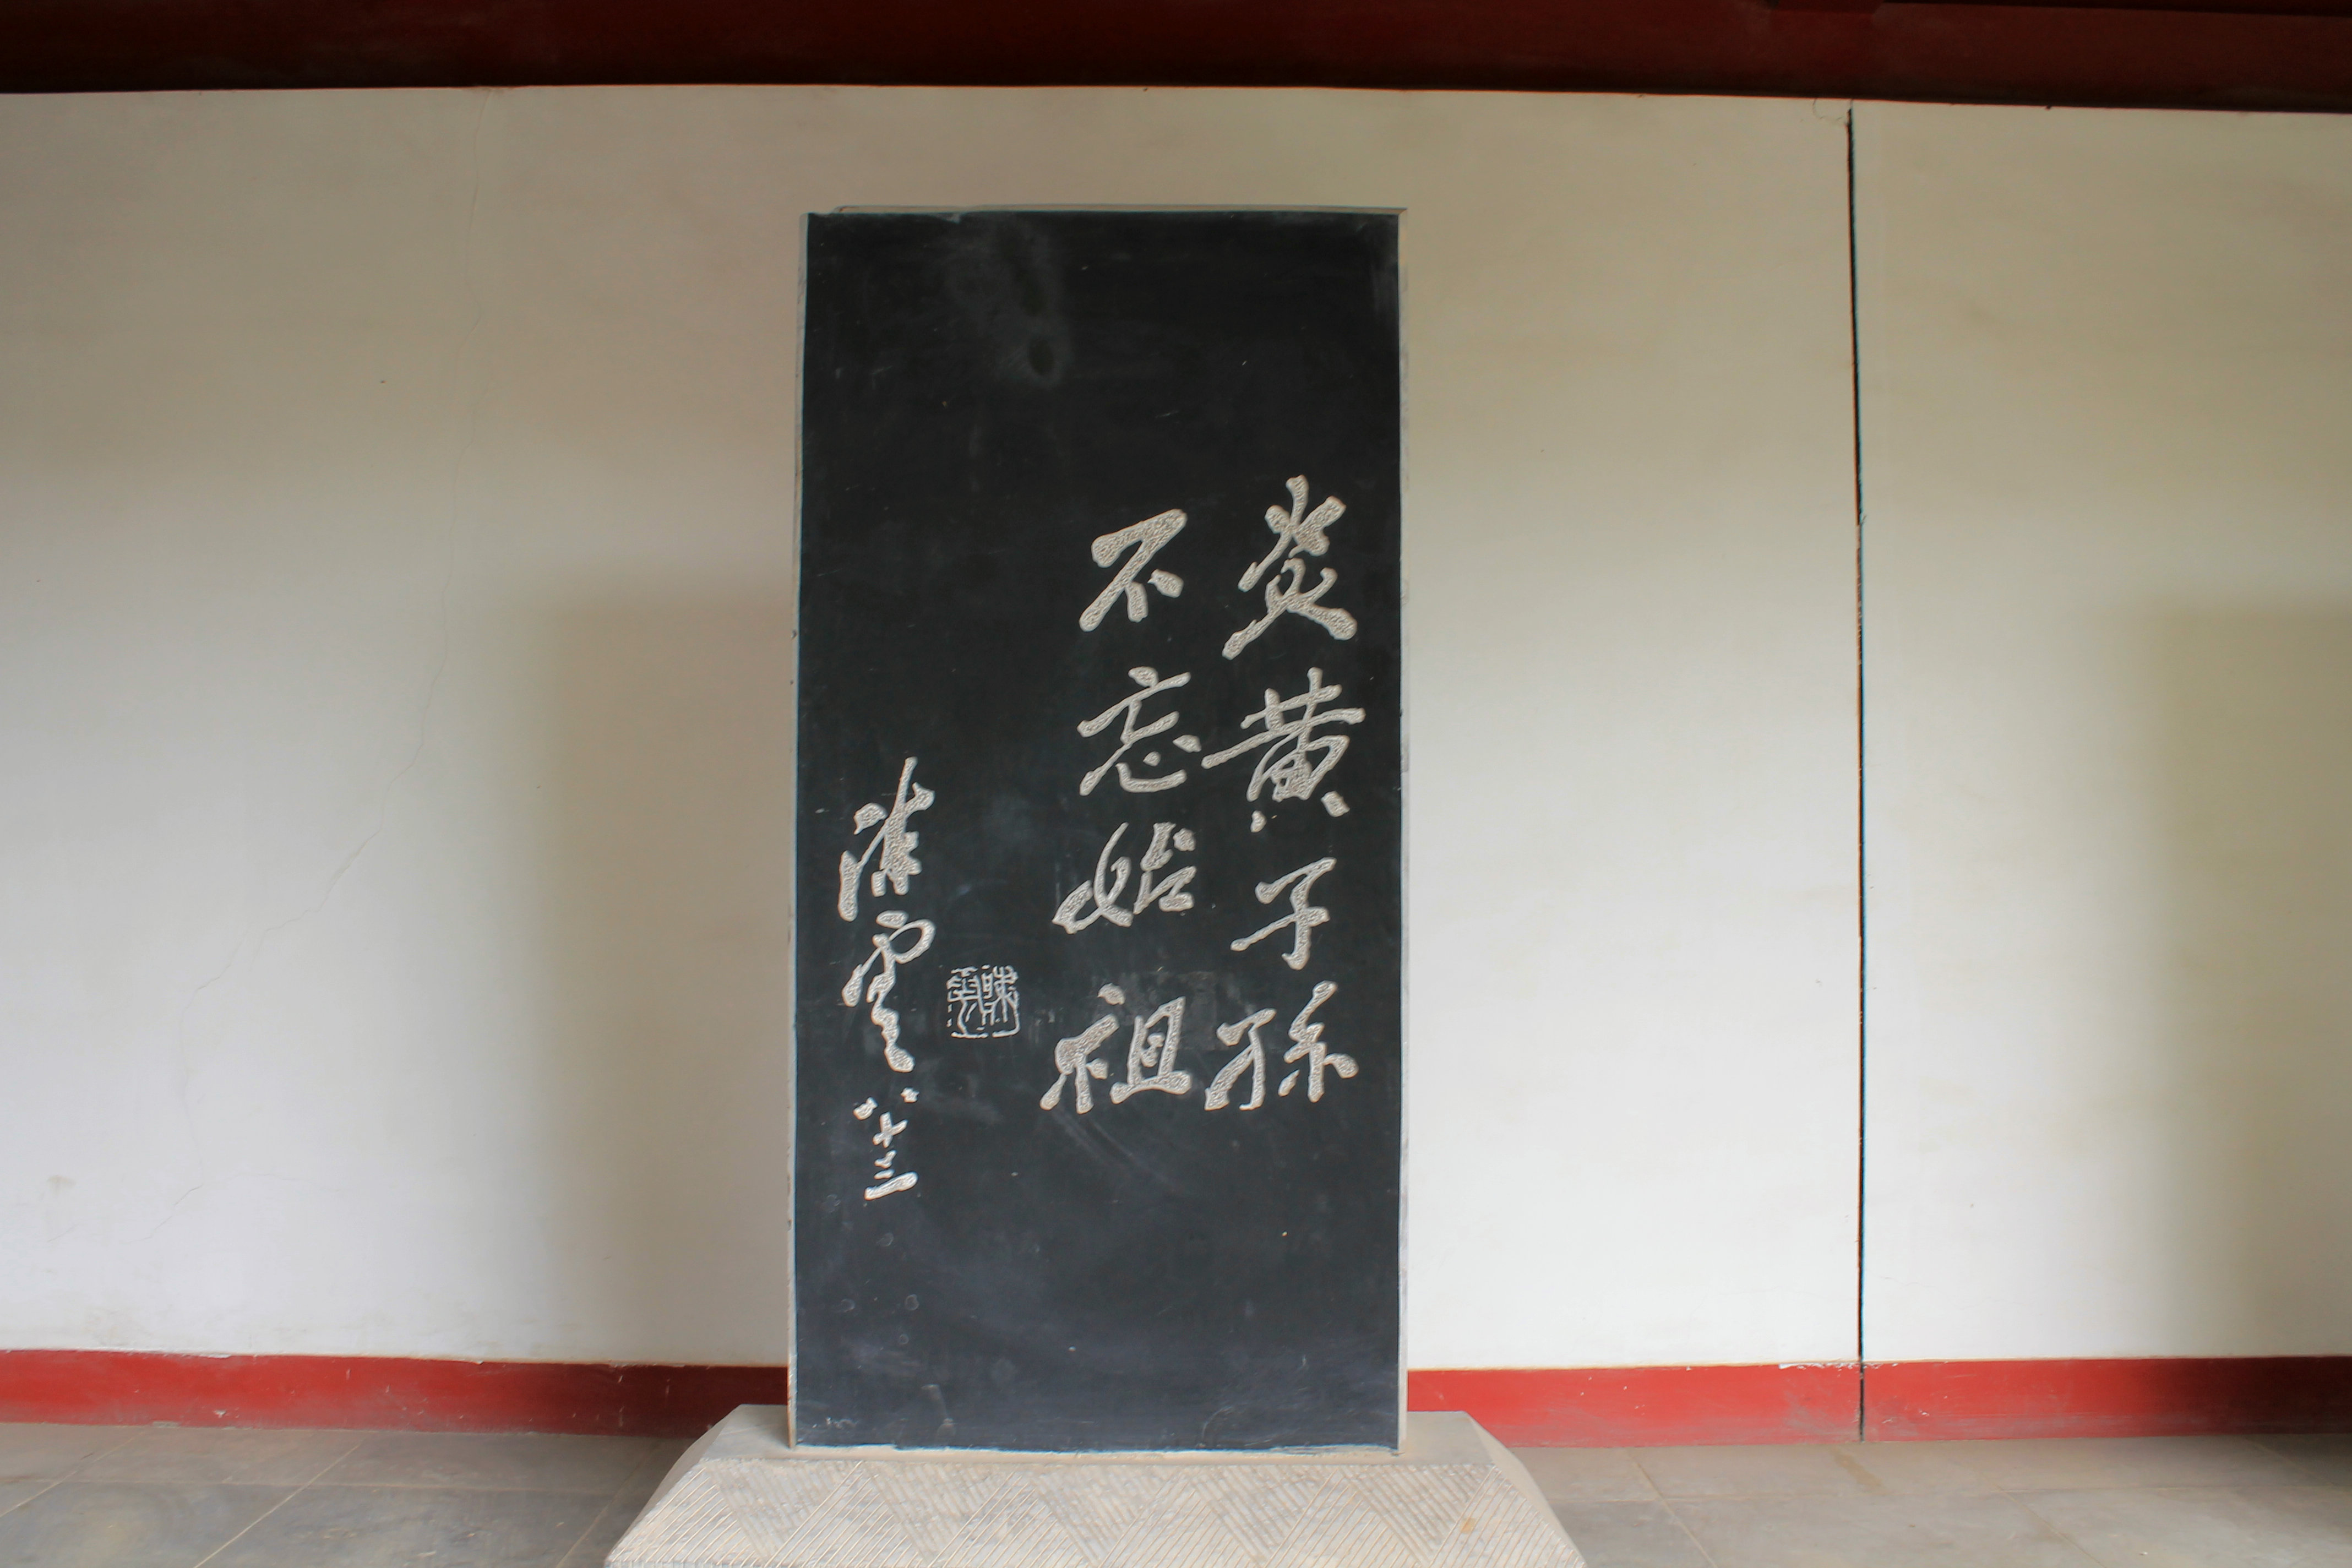 炎黄子孙
不忘始祖
陈云 八十三
陈云